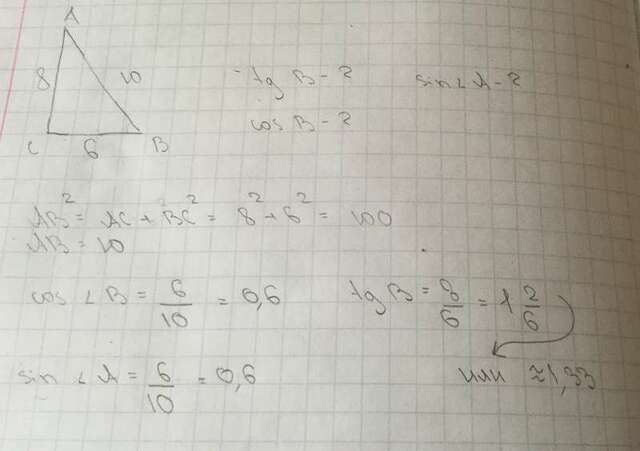 A
8 10
C 6 B
tg B - ? sin∠A - ?
cos B - ?
AB² = AC² + BC² = 8² + 6² = 100
AB = 10
cos ∠B = 6/10 = 0,6 tg B = 8/6 = 1 2/6
sin ∠A = 6/10 = 0,6 или ≈1,33